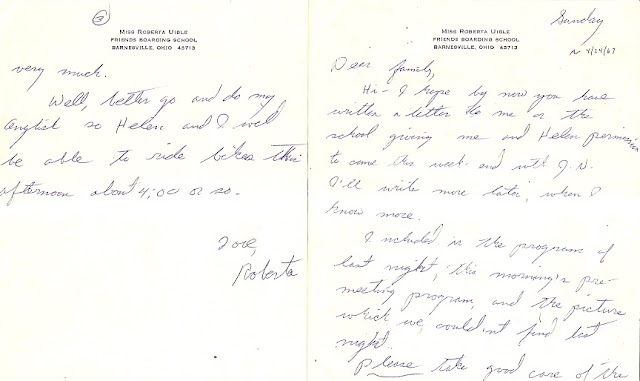 3
MISS ROBERTA UIBLE
FRIENDS BOARDING SCHOOL
BARNESVILLE, OHIO 43713
very much.
Well, better go and do my
English so Helen and I will
be able to ride bikes this
afternoon about 4:00 or so.
Love,
Roberta
Sunday
MISS ROBERTA UIBLE
FRIENDS BOARDING SCHOOL
BARNESVILLE, OHIO 43713
Dear family,
Hi- I hope by now you have
written a letter to me or the
school giving me and Helen permission
to come this week-end with J.N.
I'll write more later, when I
know more.
I included in the program of
last night, this morning's pre-
meeting program, and the picture
which we couldn't find last
night.
Please take good care of the